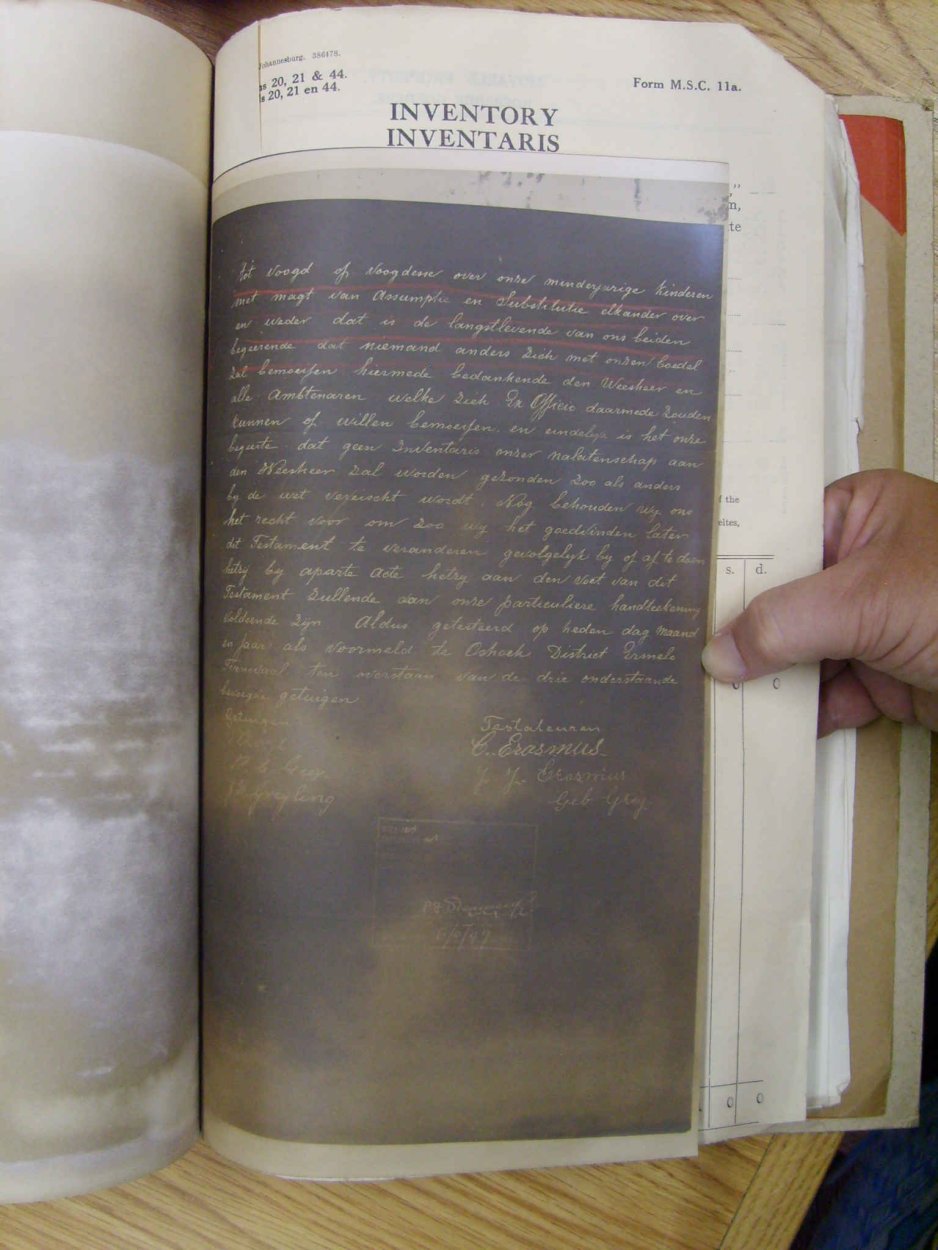 Johannesburg. 386478.
s 20, 21 & 44.
s 20, 21 en 44.
Form M.S.C. 11a.
INVENTORY
INVENTARIS
n,
te
f the
eltes,
s. d.
0 0
0 0
Tot Voogd of Voogdesse over onse minderjarige kinderen
met magt van Assumptie en Substitutie elkander over
en weder dat is de langstlevende van ons beiden
begeerende dat niemand anders zich met onzen boedel
zal bemoeijen hiermede bedankende den Weesheer en
alle Ambtenaren welke zich Ex Officio daarmede zouden
kunnen of willen bemoeijen en eindelijk is het onze
begeerte dat geen Inventaris onser nalatenschap aan
den Weesheer zal worden gezonden zoo als anders
by de wet vereischt wordt. Nog behouden wy ons
het recht voor om zoo wy het goedvinden later
dit Testament te veranderen gevolgelyk by of af te doen
hetzy by aparte Acte hetzy aan den voet van dit
Testament zullende aan onse particuliere handteekening
voldoende zyn Aldus getesteerd op heden dag maand
en jaar als voormeld te Oshoek District Ermelo
Transvaal ten overstaan van de drie onderstaande
getuigen
Getuigen
Testateuren
C. Erasmus
J J Erasmus
Geb Grey